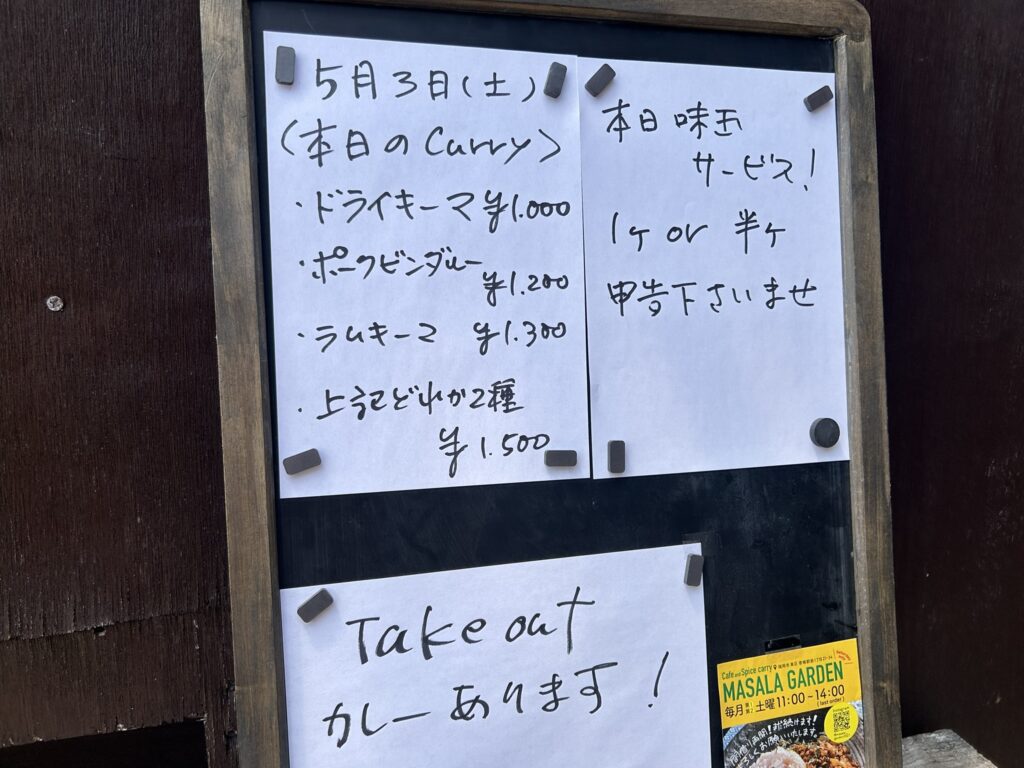 5月3日(土)
〈本日のCurry〉
・ドライキーマ ¥1.000
・ポークビンダルー
¥1.200
・ラムキーマ ¥1.300
・上記どれか2種
¥1.500
本日味玉
サービス!
1ヶ or 半ヶ
申告下さいませ
Take out
カレーあります!
Cafe and Spice carry
MASALA GARDEN
毎月 第1 第2 土曜 11:00~14:00
(last order)
お願いいたします。